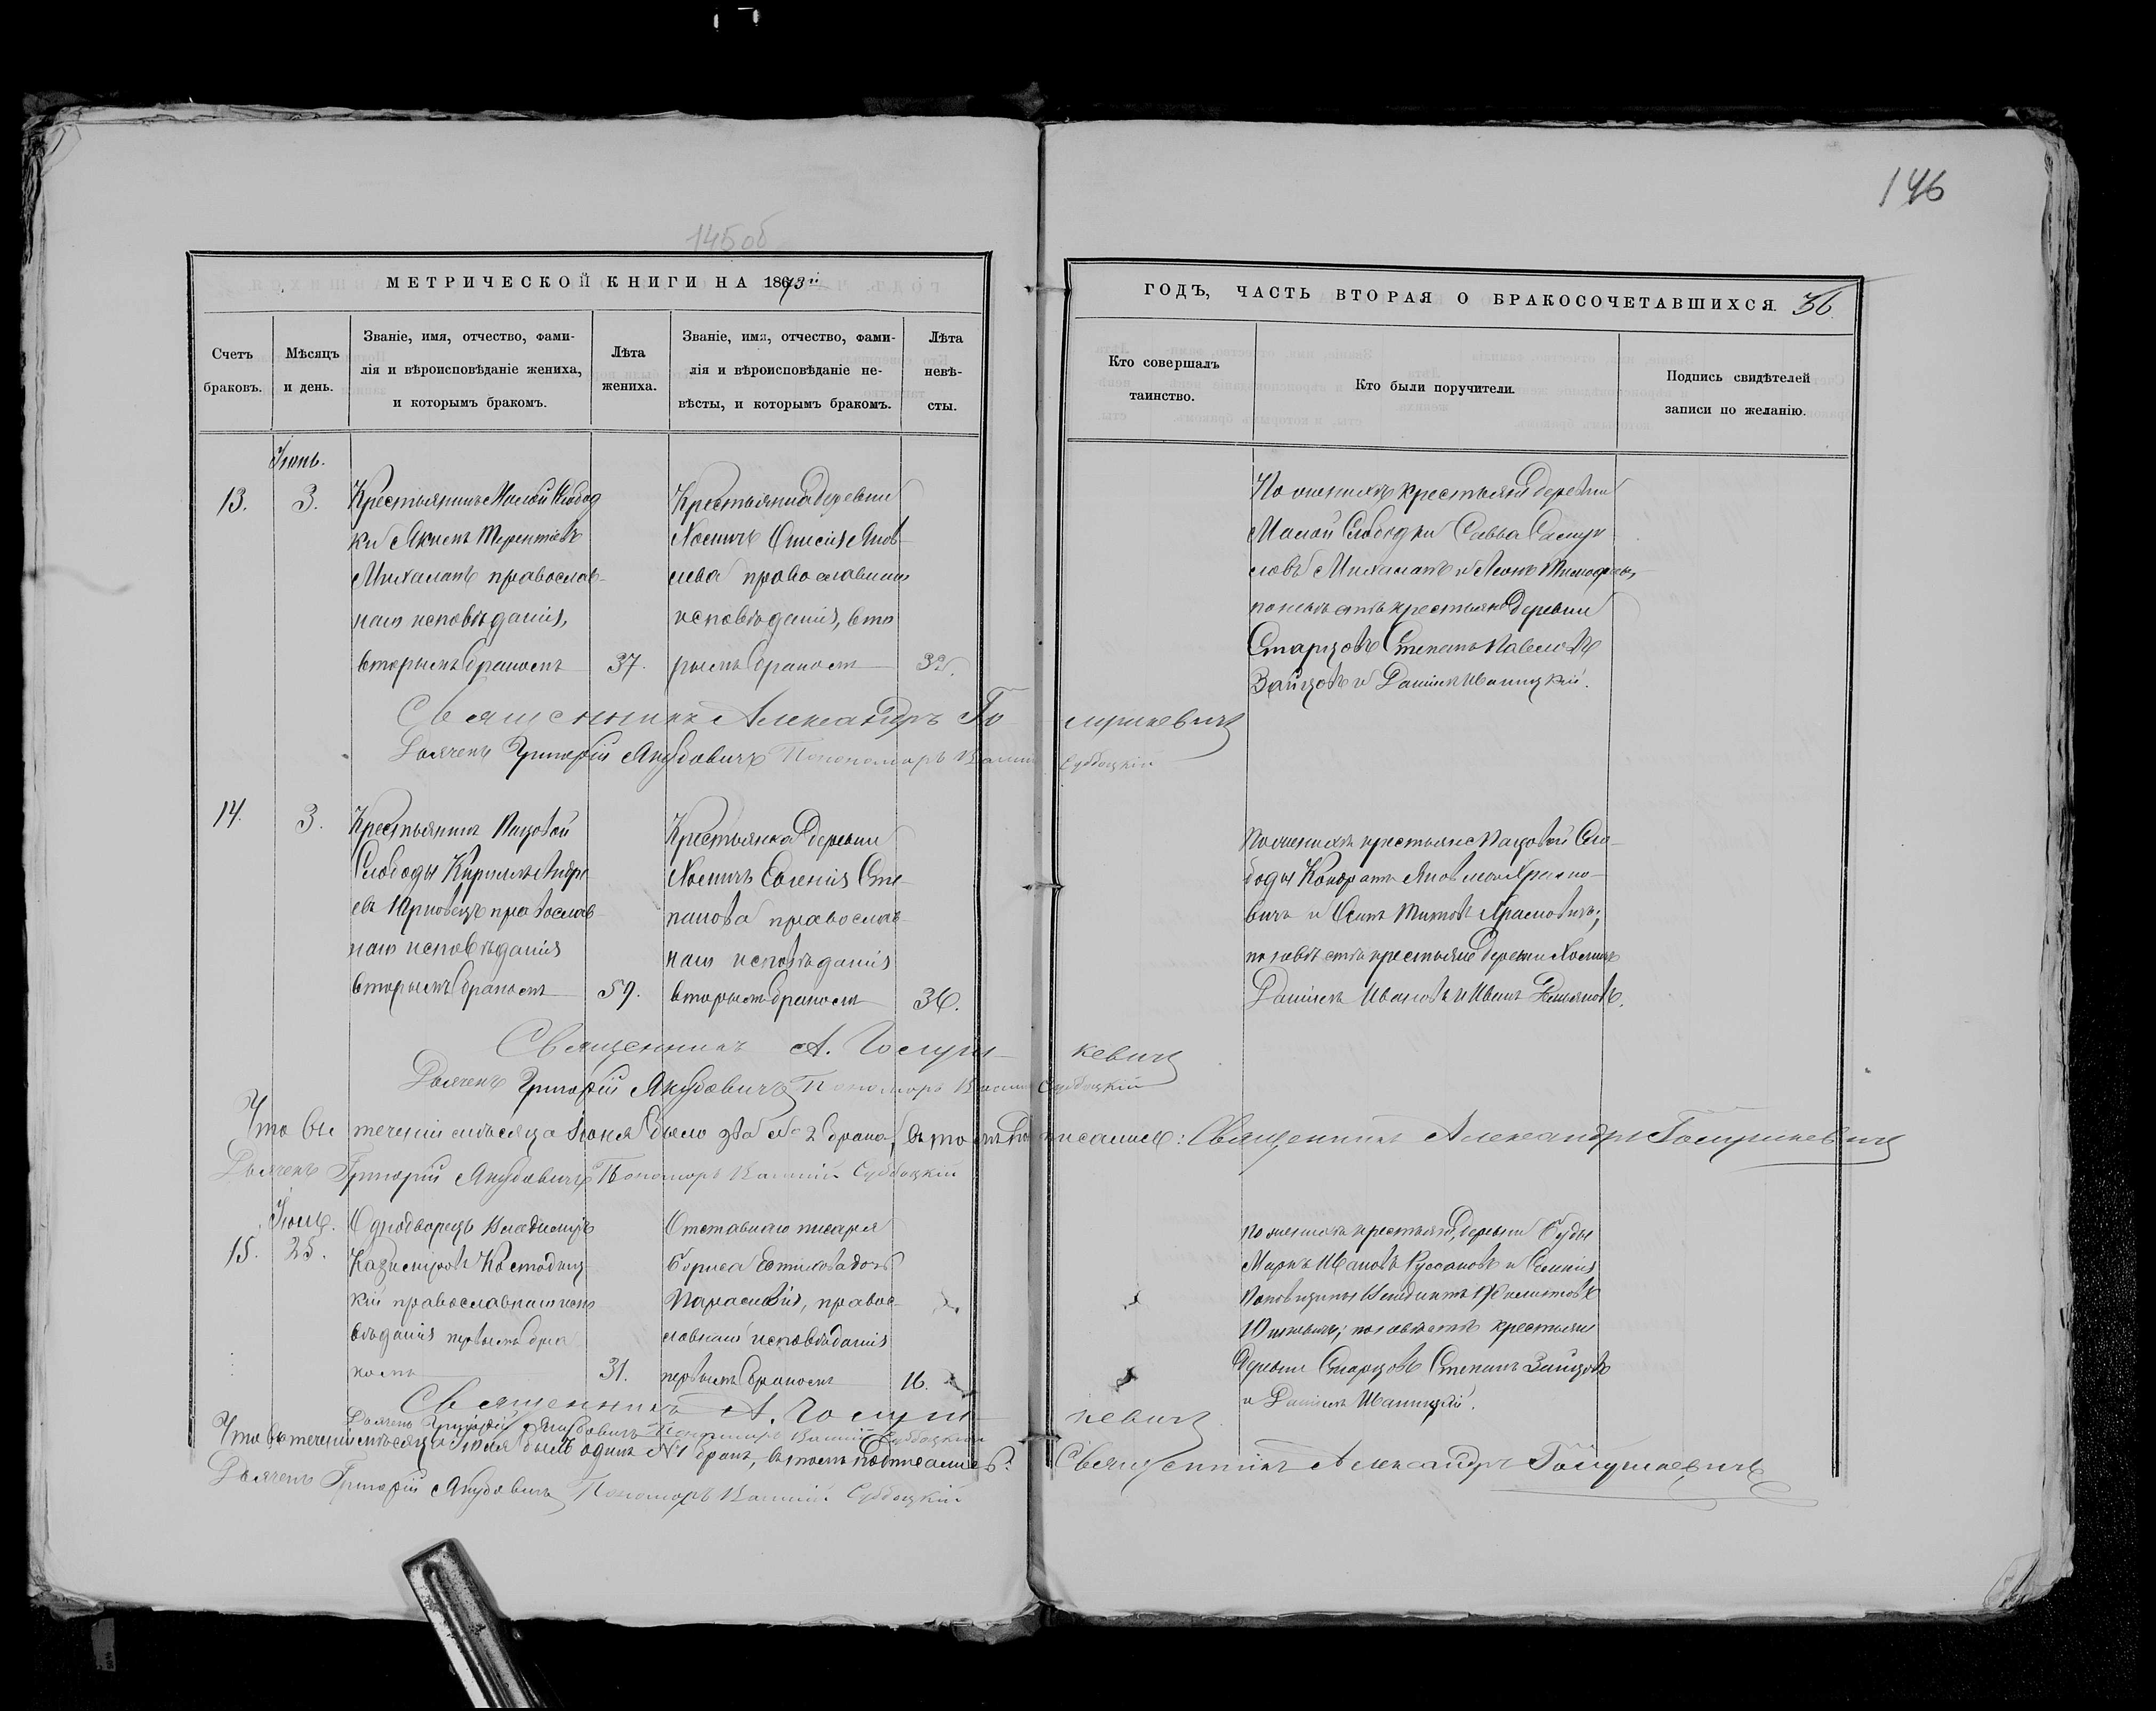 146
145 об
МЕТРИЧЕСКОЙ КНИГИ НА 1873й
ГОДЪ, ЧАСТЬ ВТОРАЯ О БРАКОСОЧЕТАВШИХСЯ. 36.
Счетъ браковъ.
Мѣсяцъ и день.
Званіе, имя, отчество, фами-
лія и вѣроисповѣданіе жениха,
и которымъ бракомъ.
Лѣта жениха.
Званіе, имя, отчество, фами-
лія и вѣроисповѣданіе не-
вѣсты, и которымъ бракомъ.
Лѣта невѣ-
сты.
Кто совершалъ
таинство.
Кто были поручители.
Подпись свидѣтелей
записи по желанію.
Іюнь.
13.
3.
Крестьянинъ Малой Слобод
ки Терентіевъ
православ-
наго исповѣданія,
вторымъ бракомъ
37.
Крестьянка деревни
Холмичъ Яков
лева православнаго
исповѣданія, вто
рымъ бракомъ
По женихѣ крестьяне деревни
Малой Слободки Савва
по невѣстѣ крестьяне деревни
Старцовъ Степанъ Павловъ
Зайцовъ и Даніилъ Иваницкій.
Священникъ Александръ Голушкевичъ
Дьячекъ Григорій Якубовичъ Пономарь Суббоцкій
14.
3.
Крестьянинъ
Слободы Кириллъ Андре
евъ православ-
наго исповѣданія
вторымъ бракомъ
59.
Крестьянка деревни
Холмичъ Евгенія Сте-
панова православ-
наго исповѣданія
вторымъ бракомъ
36.
По женихѣ крестьяне Сло-
боды Кондратъ Яковлевъ
вичъ и Осипъ Титовъ
по невѣстѣ крестьяне деревни Холмичъ
Даніилъ Ивановъ и Иванъ
Священникъ А. Голушкевичъ
Дьячекъ Григорій Якубовичъ Пономарь Суббоцкій
Что въ теченіи мѣсяца Іюня было два № 2 брака, въ томъ подписались: Священникъ Александръ Голушкевичъ
Дьячекъ Григорій Якубовичъ Пономарь Суббоцкій
Іюль.
15.
25.
Однодворецъ Владиміръ
Казиміровъ
кій православнаго испо
вѣданія первымъ бра
комъ
31.
Отставного писаря
Бориса дочь
Параскевія, правос-
лавнаго исповѣданія
первымъ бракомъ
16.
По женихѣ крестьяне, деревни Буды
Маркъ Ивановъ Руссановъ и
по невѣстѣ крестьяне
деревни Старцовъ Степанъ Зайцовъ
и Даніилъ Иваницкій.
Священникъ А. Голушкевичъ
Дьячекъ Григорій Якубовичъ Пономарь Суббоцкій
Что въ теченіи мѣсяца Іюля былъ одинъ № 1 бракъ, въ томъ подписались: Священникъ Александръ Голушкевичъ
Дьячекъ Григорій Якубовичъ Пономарь Суббоцкій